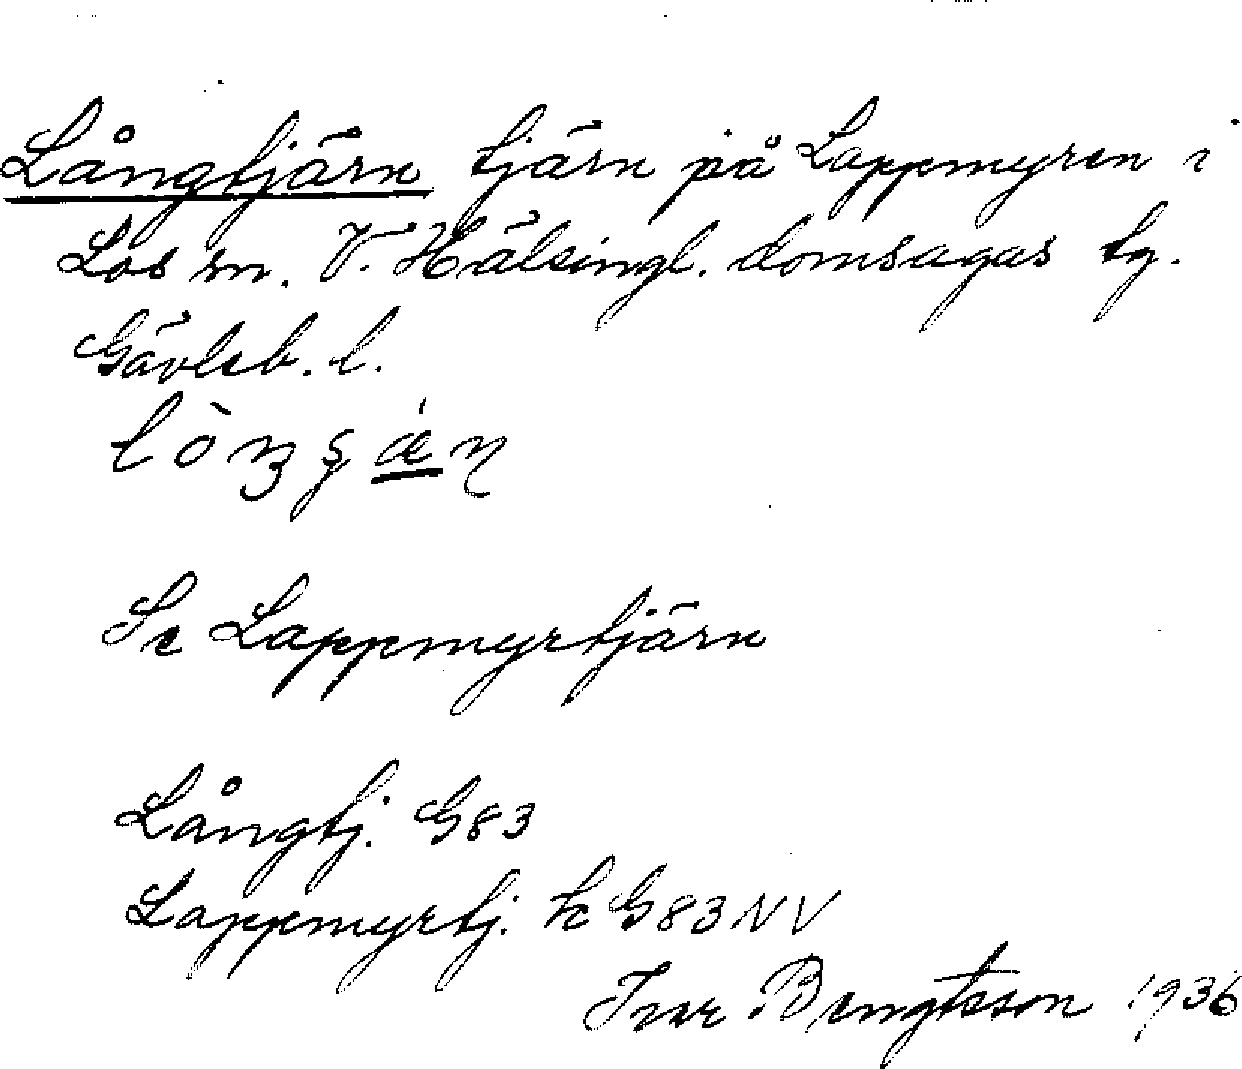 Långtjärn tjärn på Lappmyren i
Los sn. V. Hälsingl. domsagas tg.
Gävleb. l.
Se Lappmyrtjärn
Långtj. G83
Lappmyrtj. k G83NV
Ivar Bengtsson 1936